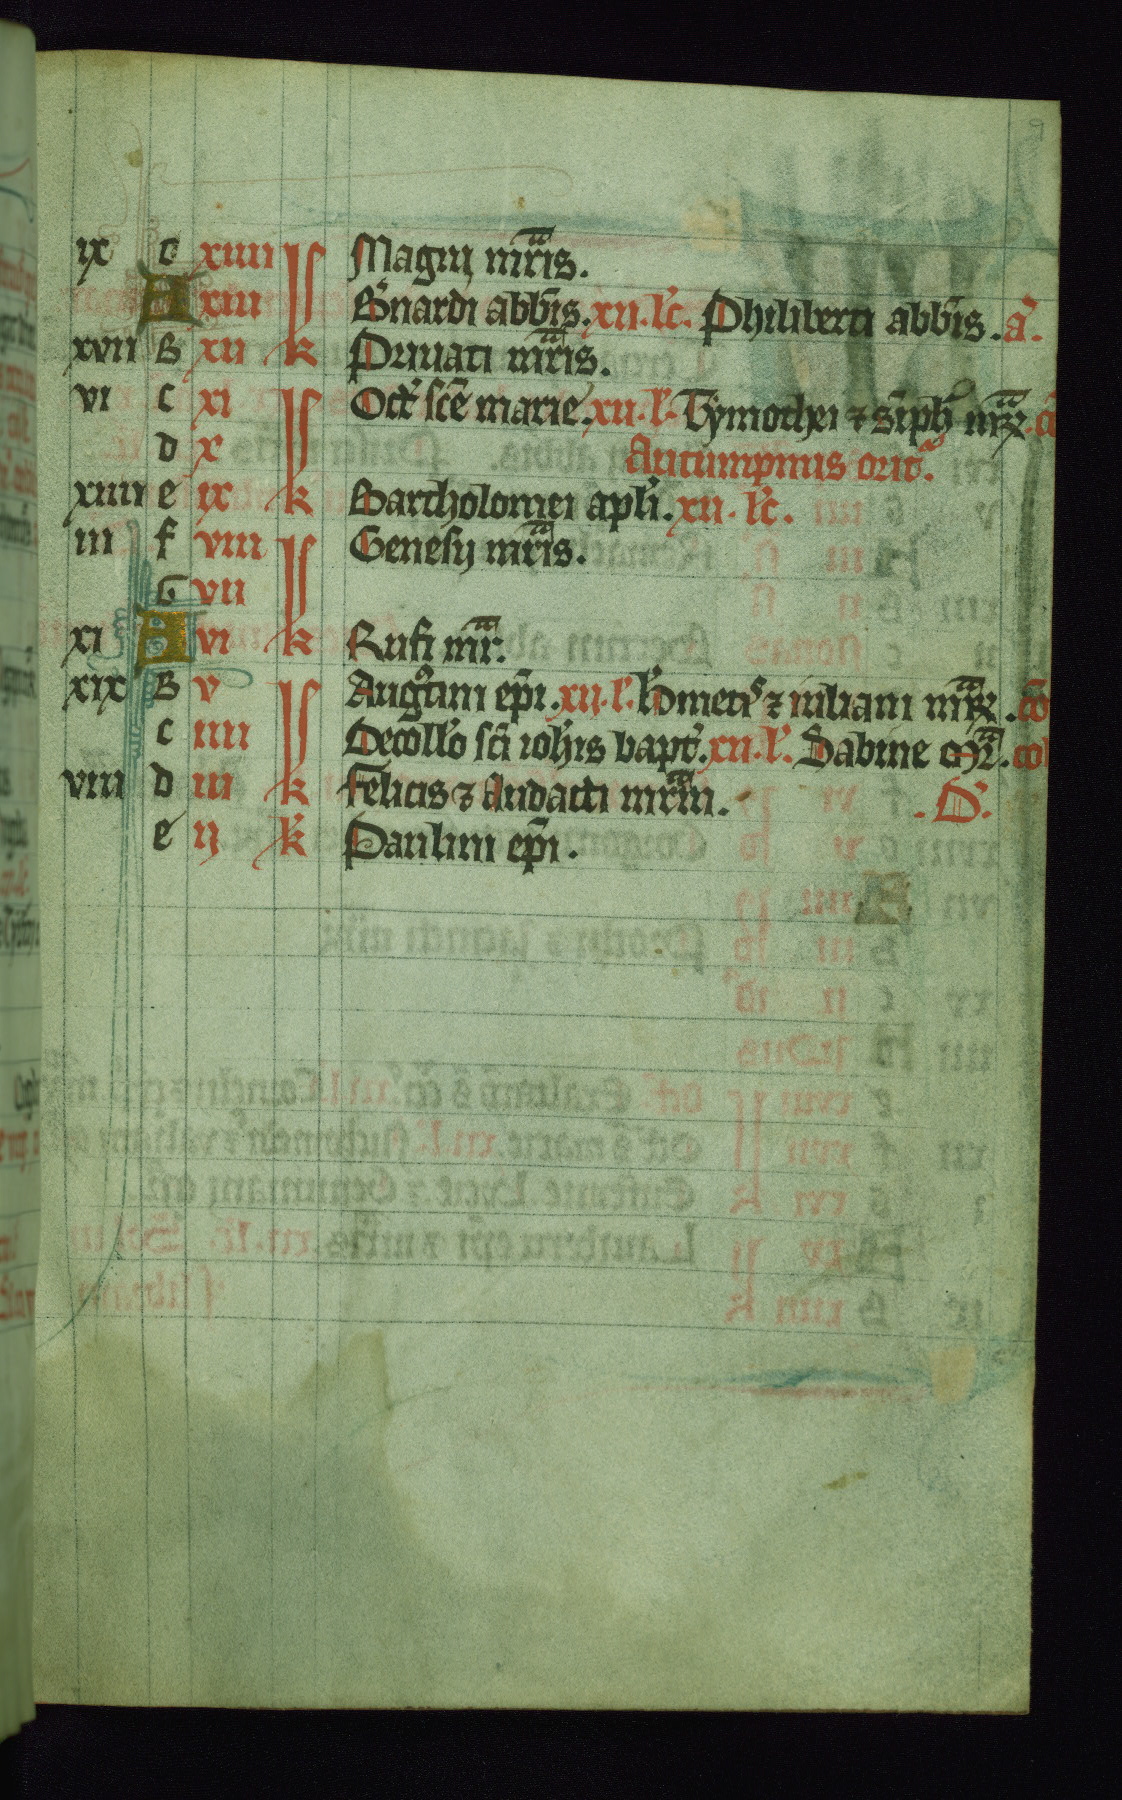 ix G xiiii k Magni mr̄is.
A xiii Bn̄ardi abb̄is. xii. lc̄. Philiberti abb̄is. a᷑.
xvii B xii k Priuati mr̄is.
vi c xi Oct᷑ sc̄e marie. xii. l᷑. Tymothei ⁊ simph᷑ mr̄ꝝ. co᷑
d x Autumpnus orit᷑.
xiiii e ix k Bartholomei apl᷑i. xii. lc̄.
iii f viii Genesij mr̄is.
G vii
xi A vi k Rufi mr̄.
xix B v August᷑ini ep̄i. xii. l᷑. Hermetis ⁊ iuliani mr̄ꝝ. co᷑
c iiii Decoll᷑o sc̄i ioh̄is bapt᷑. xii. l᷑. Sabine mr̄. co᷑
viii d iii k Felicis ⁊ Audacti mr̄m. . D᷑.
e ij k᷑ Paulini ep̄i.